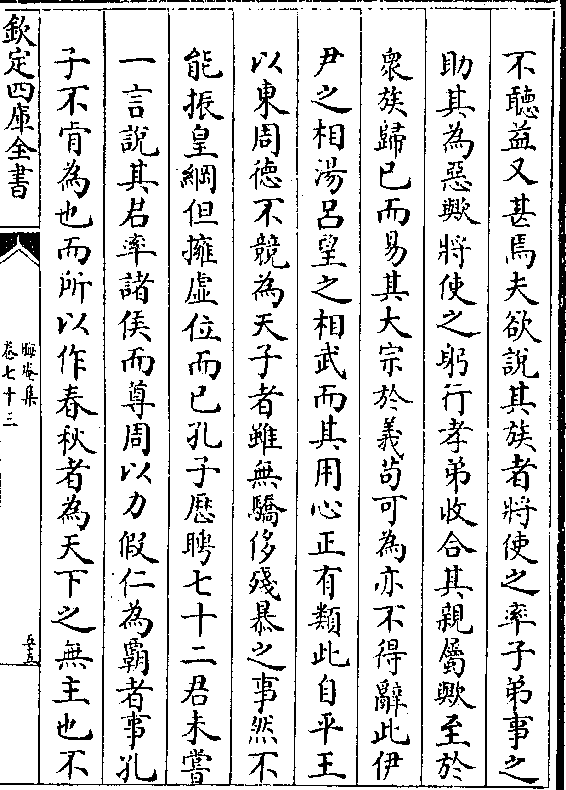 不聽益又甚焉夫欲說其族者將使之率子弟事之
助其為惡歟將使之躬行孝弟收合其親屬歟至於
衆族歸已而易其大宗於義苟可為亦不得辭此伊
尹之相湯呂望之相武而其用心正有類此自平王
以東周德不競為天子者雖無驕侈殘暴之事然不
能振皇綱但擁虛位而已孔子歴聘七十二君未嘗
一言說其君率諸侯而尊周以力假仁為霸者事孔
子不肯為也而所以作春秋者為天下之無主也不
欽定四庫全書
晦庵集
卷七十三